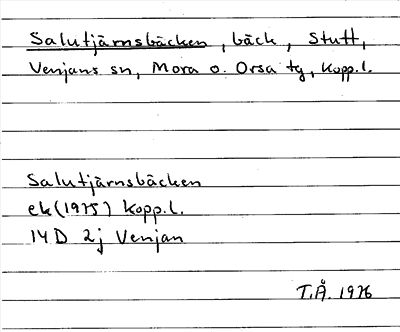 Salutjärnsbäcken, bäck, Stutt,
Venjans sn, Mora o. Orsa tg, Kopp.l.
Salutjärnsbäcken
ek (1975) Kopp.l.
14 D 2j Venjan
T.Å. 1976